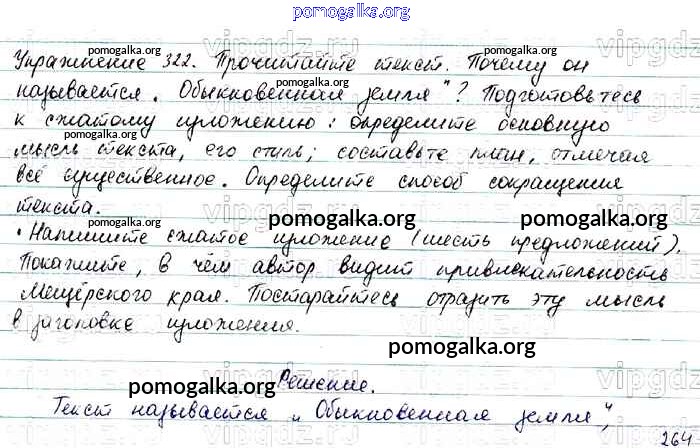 pomogalka.org
Упражнение 322. Прочитайте текст. Почему он
называется „Обыкновенная земля"? Подготовьтесь
к сжатому изложению: определите основную
мысль текста, его стиль; составьте план, отмечая
всё существенное. Определите способ сокращения
текста.
• Напишите сжатое изложение (шесть предложений).
Покажите, в чём автор видит привлекательность
Мещёрского края. Постарайтесь отразить эту мысль
в заголовке изложения.
Решение.
Текст называется „Обыкновенная земля",
264